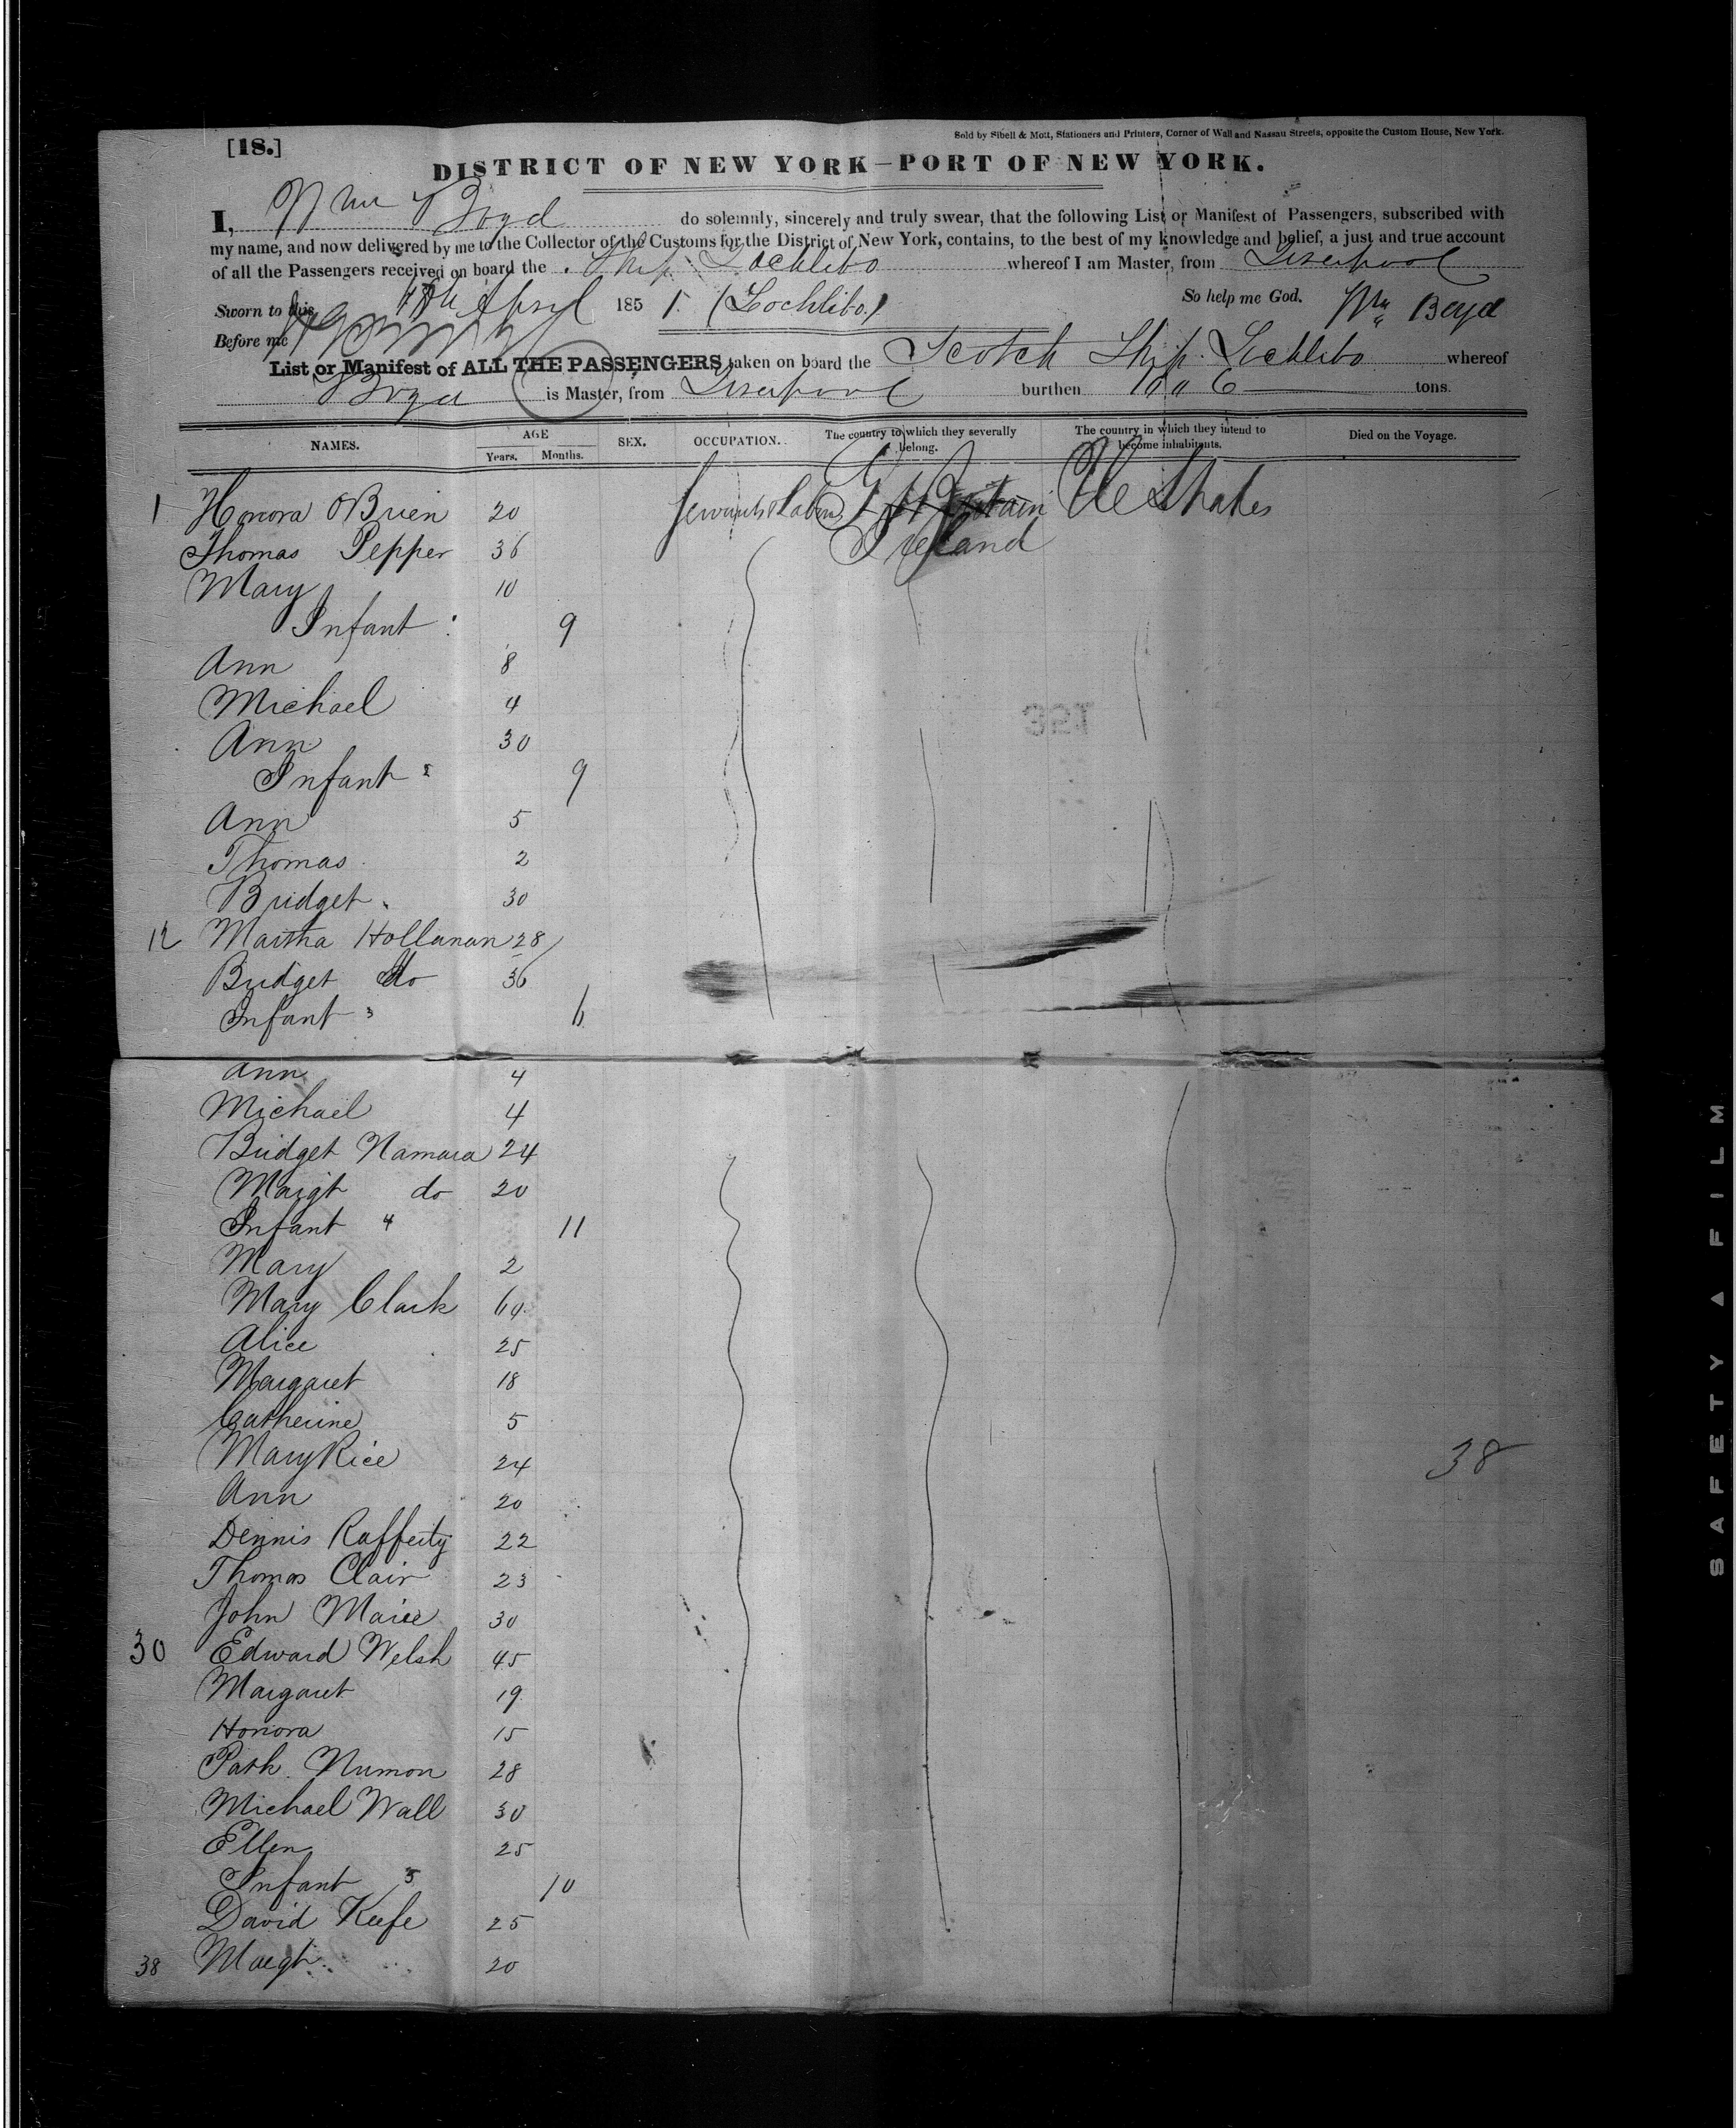 [18.]
Sold by Sibell & Mott, Stationers and Printers, Corner of Wall and Nassau Streets, opposite the Custom House, New York.
DISTRICT OF NEW YORK—PORT OF NEW YORK.
I, Wm Boyd do solemnly, sincerely and truly swear, that the following List or Manifest of Passengers, subscribed with
my name, and now delivered by me to the Collector of the Customs for the District of New York, contains, to the best of my knowledge and belief, a just and true account
of all the Passengers received on board the Ship Lochlibo whereof I am Master, from Liverpool
Sworn to this April 1851. (Lochlibo) So help me God. Wm Boyd
Before me
List or Manifest of ALL THE PASSENGERS taken on board the Scotch Ship Lochlibo whereof
Boyd is Master, from Liverpool burthen tons.
NAMES. AGE Years. Months. SEX. OCCUPATION. The country to which they severally belong. The country in which they intend to become inhabitants. Died on the Voyage.
1 Honora OBrien 20 Servants & Labrs Gt Britain Ue States
Thomas Pepper 36 Ireland
Mary 10
Infant 9
Ann 8
Michael 4
Ann 30
Infant 9
Ann 5
Thomas 2
Bridget 30
12 Martha Hollanan 28
Bridget do 36
Infant 6
Ann 4
Michael 4
Bridget Namara 24
Margt do 20
Infant 11
Mary 2
Mary Clark 60
Alice 25
Margaret 18
Catherine 5
Mary Rice 24
38
Ann 20
Dennis Rafferty 22
Thomas Clair 23
John 30
30 Edward Welsh 45
Margaret 19
Honora 15
Patk. Numon 28
Michael Wall 30
Ellen 25
Infant 10
David Keefe 25
38 Margt 20
SAFETY FILM